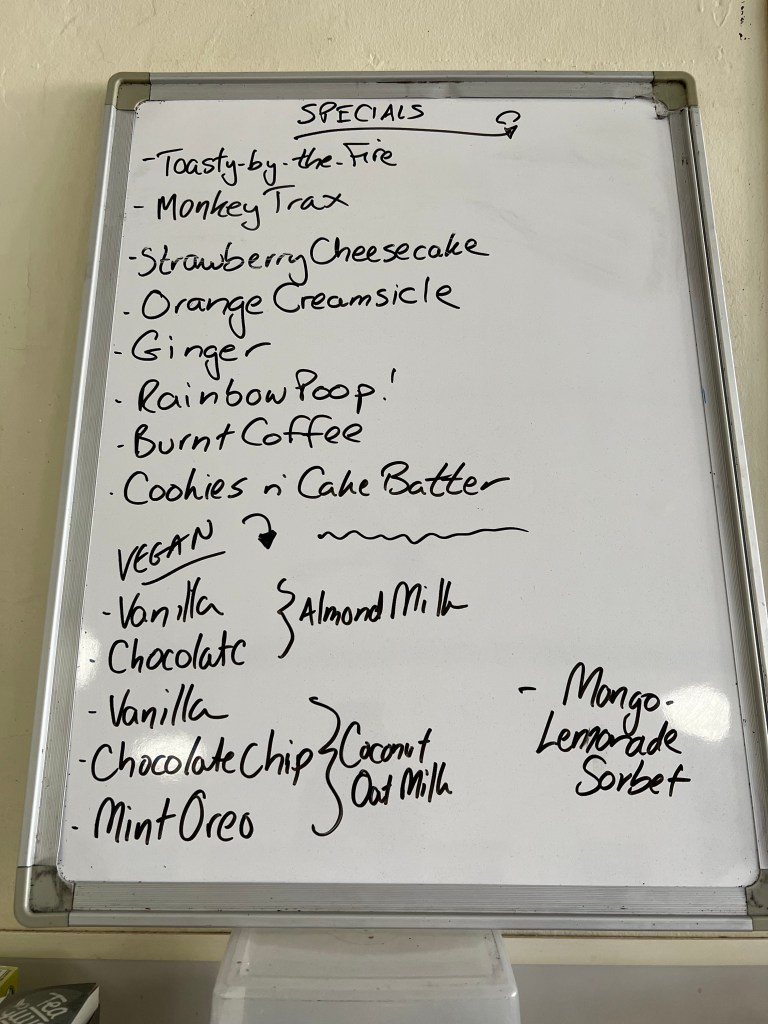 SPECIALS
- Toasty-by-the-Fire
- Monkey Trax
- Strawberry Cheesecake
- Orange Creamsicle
- Ginger
- Rainbow Poop!
- Burnt Coffee
- Cookies n' Cake Batter
VEGAN
- Vanilla } Almond Milk
- Chocolate
- Vanilla
- Chocolate Chip } Coconut
Oat Milk
- Mint Oreo
- Mango-
Lemonade
Sorbet
Tea